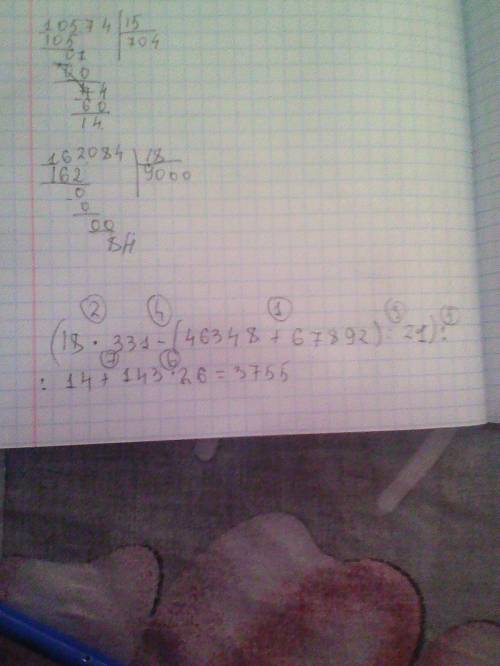 10574 | 15
105 704
01
00
74
60
14
162084 | 18
162 9000
0
0
00
84
2 4 1 3 5
(18 · 331 - (46348 + 67892) : 21) :
7 6
: 14 + 143 · 26 = 3755